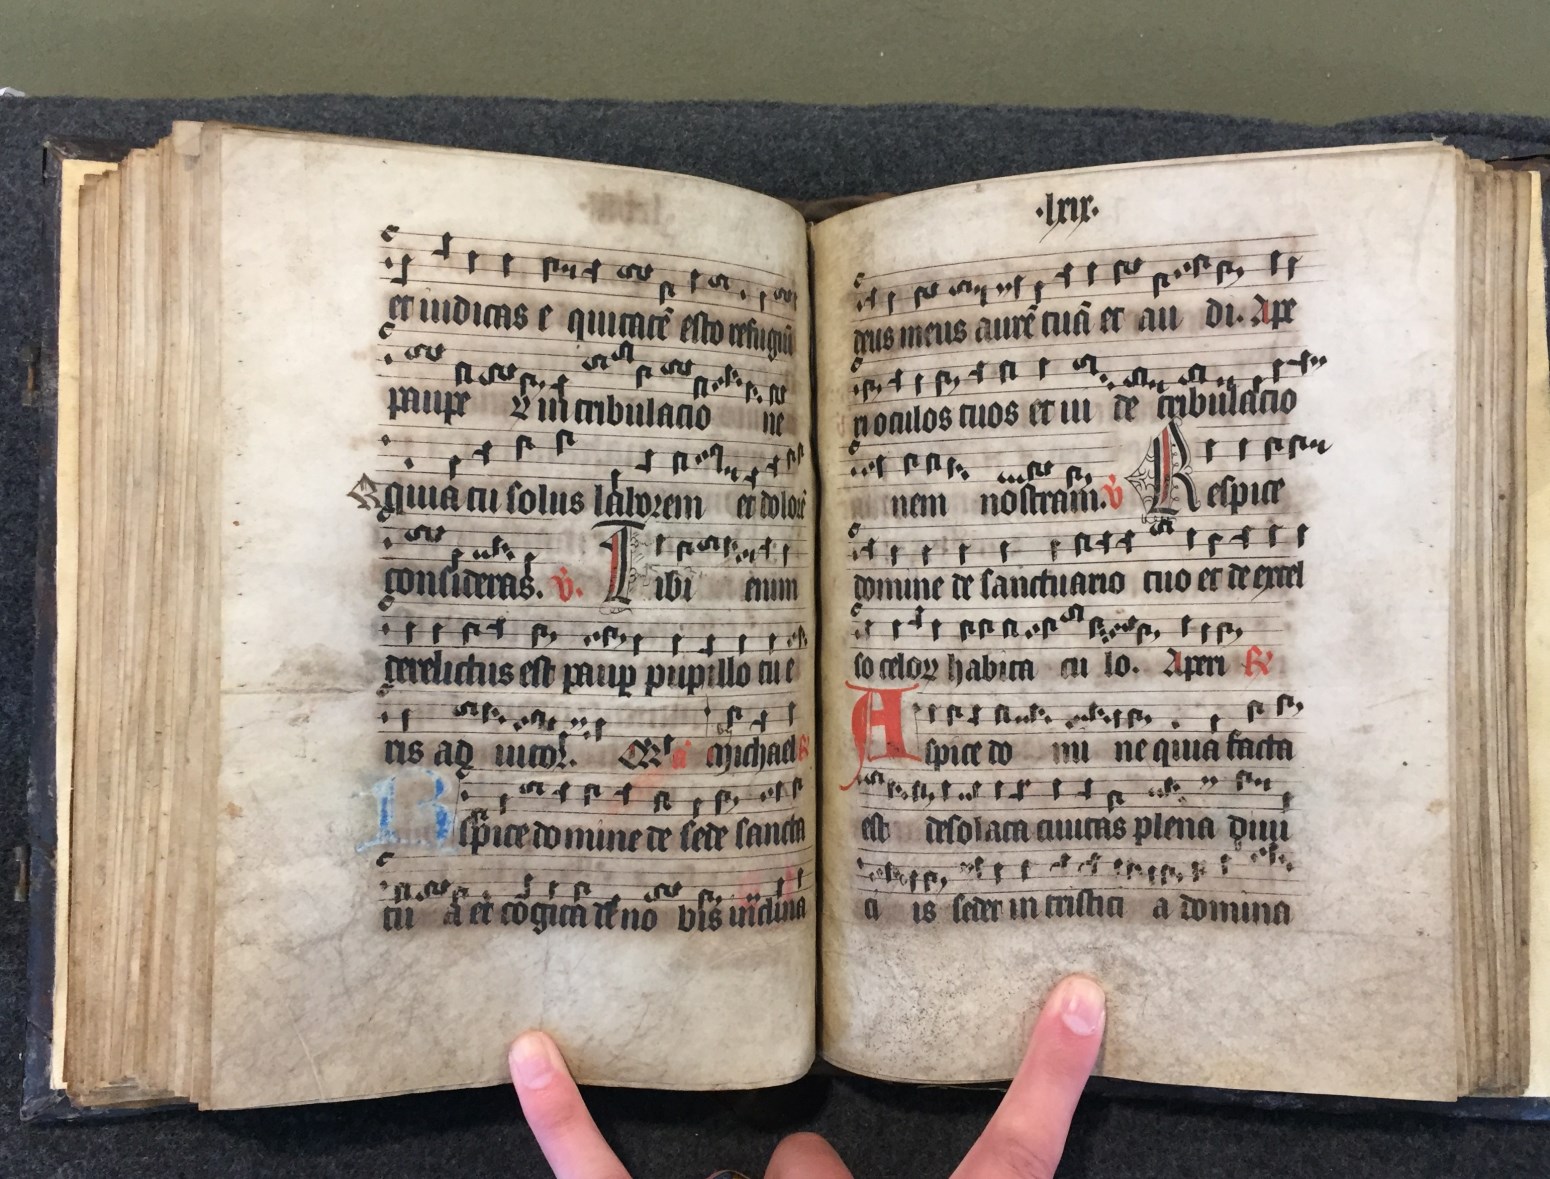 et iudicas e quitatē esto refugiū
paupe r in tribulacio ne
quia tu solus laborem et dolorē
consideras. v̄. Tibi enim
derelictus est paup pupillo tu e
ris ad iutor. michael
Respice domine de sede sancta
tu a et cogita de no bis inclina
.lxix.
deus meus aurē tuā et au di. Ape
ri oculos tuos et ui de tribulacio
nem nostram. v̄ Respice
domine de sanctuario tuo et de excel
so celoꝝ habita cu lo. Aperi R̄
Aspice do mi ne quia facta
est desolata ciuitas plena diui
ci is sedet in tristici a domina